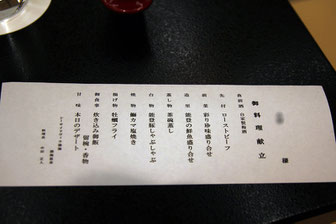 御料理献立 様
食前酒 自家製梅酒
先付 ローストビーフ
前菜 彩り珍味盛り合せ
造里 能登の鮮魚盛り合せ
蒸し物 茶碗蒸し
台物 能登豚しゃぶしゃぶ
焼物 鰤カマ塩焼き
揚げ物 牡蠣フライ
御食事 炊き込み御飯
留椀・香物
甘味 本日のデザート